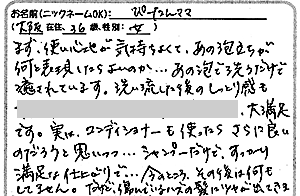 お名前(ニックネームOK): ぴーすけママ
(大阪 在住、36歳、性別: 女)
まず、使い心地が気持ちよくて、あの泡立ちが
何と表現したらよいのか…あの泡で洗うだけで
癒されています。洗い流した後のしっとり感も
、大満足
です。実は、コンディショナーも使ったらさらに良い
のだろうと思いつつ…シャンプーだけで、すっかり
満足な仕上がりで…今のところ、その後は何も
してません。